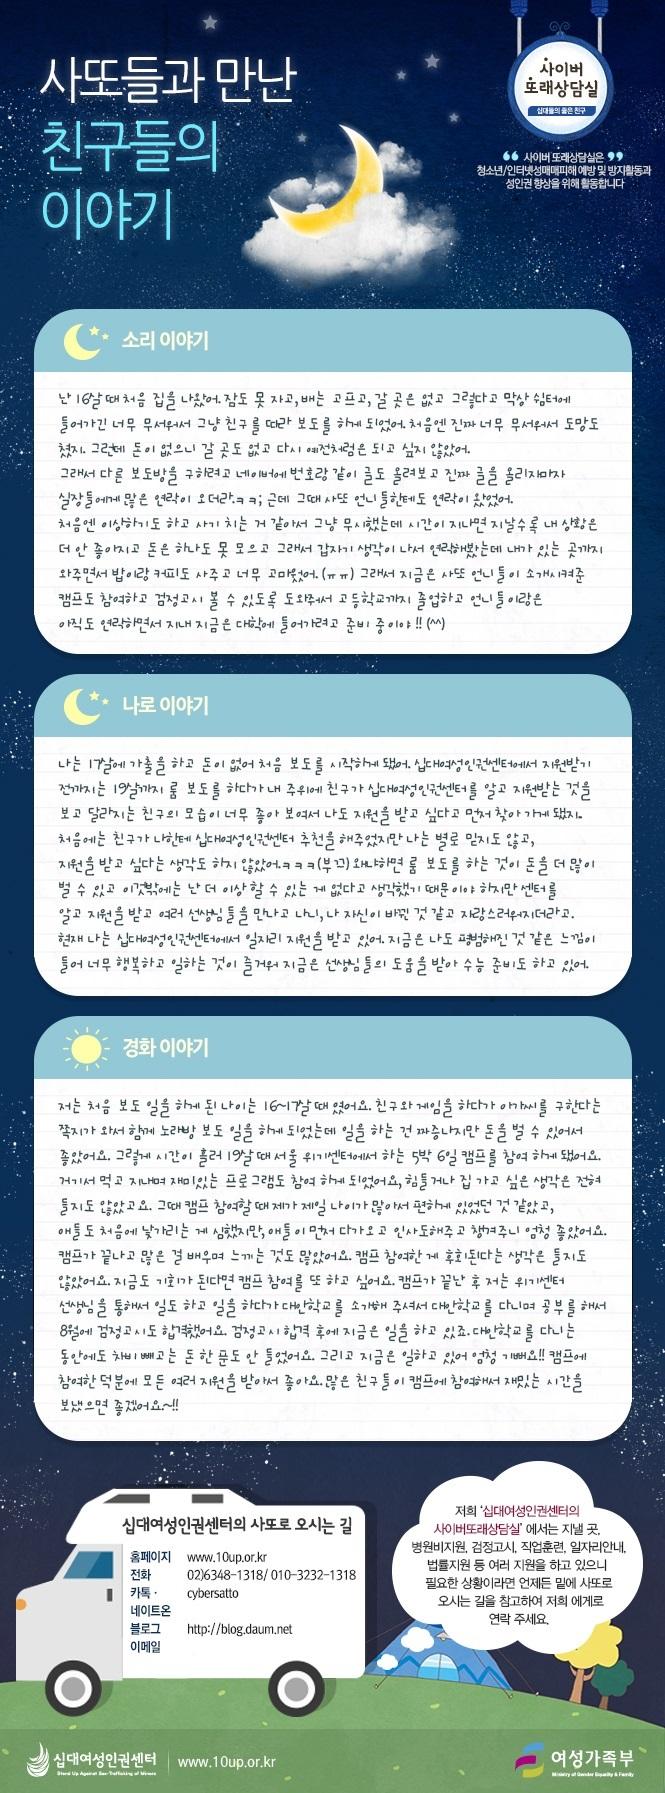 사또들과 만난
친구들의
이야기
사이버
또래상담실
십대들의 좋은 친구
“ 사이버 또래상담실은 ”
청소년/인터넷성매매피해 예방 및 방지활동과
성인권 향상을 위해 활동합니다
소리 이야기
난 16살 때 처음 집을 나왔어. 잠도 못 자고, 배는 고프고, 갈 곳은 없고 그렇다고 막상 쉼터에
들어가긴 너무 무서워서 그냥 친구를 따라 보도를 하게 되었어. 처음엔 진짜 너무 무서워서 도망도
쳤지. 그런데 돈이 없으니 갈 곳도 없고 다시 예전처럼은 되고 싶지 않았어.
그래서 다른 보도방을 구하려고 네이버에 번호랑 같이 글도 올려보고 진짜 글을 올리자마자
실장들에게 많은 연락이 오더라.ㅋㅋ; 근데 그때 사또 언니들한테도 연락이 왔었어.
처음엔 이상하기도 하고 사기 치는 거 같아서 그냥 무시했는데 시간이 지나면 지날수록 내 상황은
더 안 좋아지고 돈은 하나도 못 모으고 그래서 갑자기 생각이 나서 연락해봤는데 내가 있는 곳까지
와주면서 밥이랑 커피도 사주고 너무 고마웠어. (ㅠㅠ) 그래서 지금은 사또 언니들이 소개시켜준
캠프도 참여하고 검정고시 볼 수 있도록 도와줘서 고등학교까지 졸업하고 언니들이랑은
아직도 연락하면서 지내 지금은 대학에 들어가려고 준비 중이야 !! (^^)
나로 이야기
나는 17살에 가출을 하고 돈이 없어 처음 보도를 시작하게 됐어. 십대여성인권센터에서 지원받기
전까지는 19살까지 룸 보도를 하다가 내 주위에 친구가 십대여성인권센터를 알고 지원받는 것을
보고 달라지는 친구의 모습이 너무 좋아 보여서 나도 지원을 받고 싶다고 먼저 찾아 가게 됐지.
처음에는 친구가 나한테 십대여성인권센터 추천을 해주었지만 나는 별로 믿지도 않고,
지원을 받고 싶다는 생각도 하지 않았어.ㅋㅋㅋ(부끄) 왜냐하면 룸 보도를 하는 것이 돈을 더 많이
벌 수 있고 이것밖에는 난 더 이상 할 수 있는 게 없다고 생각했기 때문이야 하지만 센터를
알고 지원을 받고 여러 선생님들을 만나고 나니, 나 자신이 바뀐 것 같고 자랑스러워지더라고.
현재 나는 십대여성인권센터에서 일자리 지원을 받고 있어. 지금은 나도 평범해진 것 같은 느낌이
들어 너무 행복하고 일하는 것이 즐거워 지금은 선생님들의 도움을 받아 수능 준비도 하고 있어.
경화 이야기
저는 처음 보도 일을 하게 된 나이는 16~17살 때 였어요. 친구와 게임을 하다가 아가씨를 구한다는
쪽지가 와서 함께 노래방 보도 일을 하게 되었는데 일을 하는 건 짜증나지만 돈을 벌 수 있어서
좋았어요. 그렇게 시간이 흘러 19살 때 서울 위기센터에서 하는 5박 6일 캠프를 참여 하게 됐어요.
거기서 먹고 지내며 재미있는 프로그램도 참여 하게 되었어요, 힘들거나 집 가고 싶은 생각은 전혀
들지도 않았고요. 그때 캠프 참여할 때 제가 제일 나이가 많아서 편하게 있었던 것 같았고,
애들도 처음에 낯가리는 게 심했지만, 애들이 먼저 다가오고 인사도해주고 챙겨주니 엄청 좋았어요.
캠프가 끝나고 많은 걸 배우며 느끼는 것도 많았어요. 캠프 참여한 게 후회된다는 생각은 들지도
않았어요. 지금도 기회가 된다면 캠프 참여를 또 하고 싶어요. 캠프가 끝난 후 저는 위기센터
선생님을 통해서 일도 하고 일을 하다가 대안학교를 소개해 주셔서 대안학교를 다니며 공부를 해서
8월에 검정고시도 합격했어요. 검정고시 합격 후에 지금은 일을 하고 있죠. 대안학교를 다니는
동안에도 차비 빼고는 돈 한 푼도 안 들었어요. 그리고 지금은 일하고 있어 엄청 기뻐요!! 캠프에
참여한 덕분에 모든 여러 지원을 받아서 좋아요. 많은 친구들이 캠프에 참여해서 재밌는 시간을
보냈으면 좋겠어요.~!!
십대여성인권센터의 사또로 오시는 길
홈페이지 www.10up.or.kr
전화 02)6348-1318/ 010-3232-1318
카톡 · cybersatto
네이트온
블로그 http://blog.daum.net
이메일
저희 ‘십대여성인권센터의
사이버또래상담실’ 에서는 지낼 곳,
병원비지원, 검정고시, 직업훈련, 일자리안내,
법률지원 등 여러 지원을 하고 있으니
필요한 상황이라면 언제든 밑에 사또로
오시는 길을 참고하여 저희 에게로
연락 주세요.
십대여성인권센터 www.10up.or.kr
Stand Up Against Sex-Trafficking of Minors
여성가족부
Ministry of Gender Equality & Family